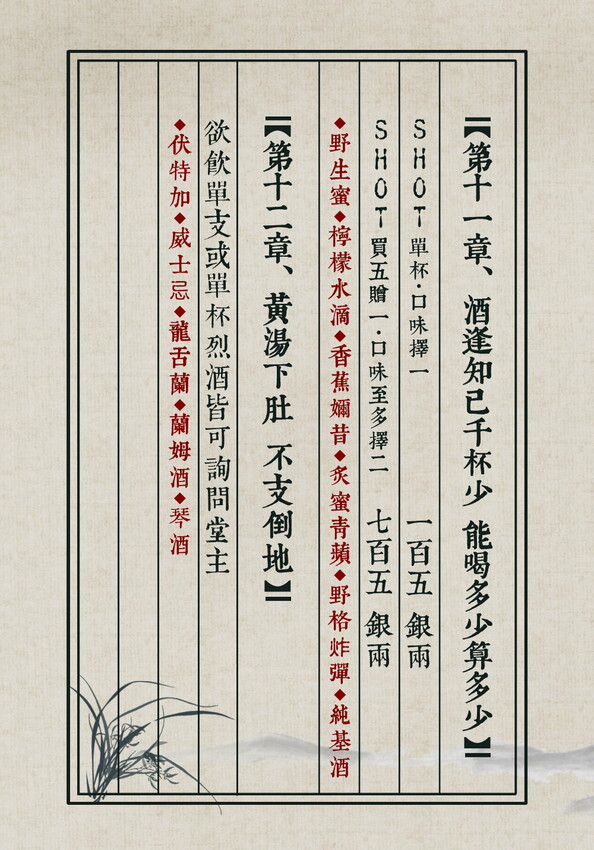 【第十一章、酒逢知己千杯少 能喝多少算多少】
SHOT 單杯·口味擇一 一百五 銀兩
SHOT 買五贈一·口味至多擇二 七百五 銀兩
◆野生蜜◆檸檬水滴◆香蕉嬭昔◆炙蜜青蘋◆野格炸彈◆純基酒
【第十二章、黃湯下肚 不支倒地】
欲飲單支或單杯烈酒皆可詢問堂主
◆伏特加◆威士忌◆龍舌蘭◆蘭姆酒◆琴酒